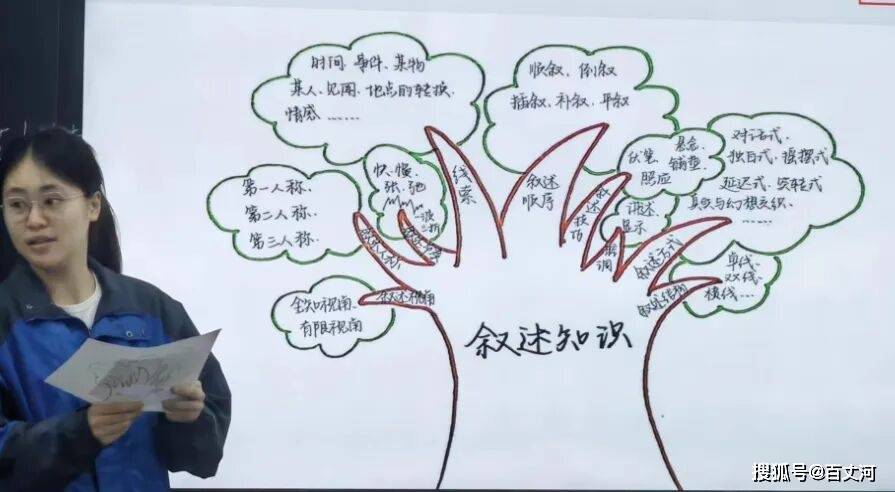 时间、事件、某物
某人、见闻、地点的转换、
情感……
顺叙、倒叙
插叙、补叙、平叙
第一人称、
第二人称、
第三人称、
快、慢、
张、弛
一波
三折
线索
叙述
顺序
叙述技巧
伏笔、
悬念、
铺垫、
照应
讲述
显示
对话式、
独白式、摇摆式
延迟式、突转式
真实与幻想交织、
……
全知视角、
有限视角
叙述视角
叙述方式
叙述结构
单线、
双线、
横线…
叙述知识
搜狐号@百丈河